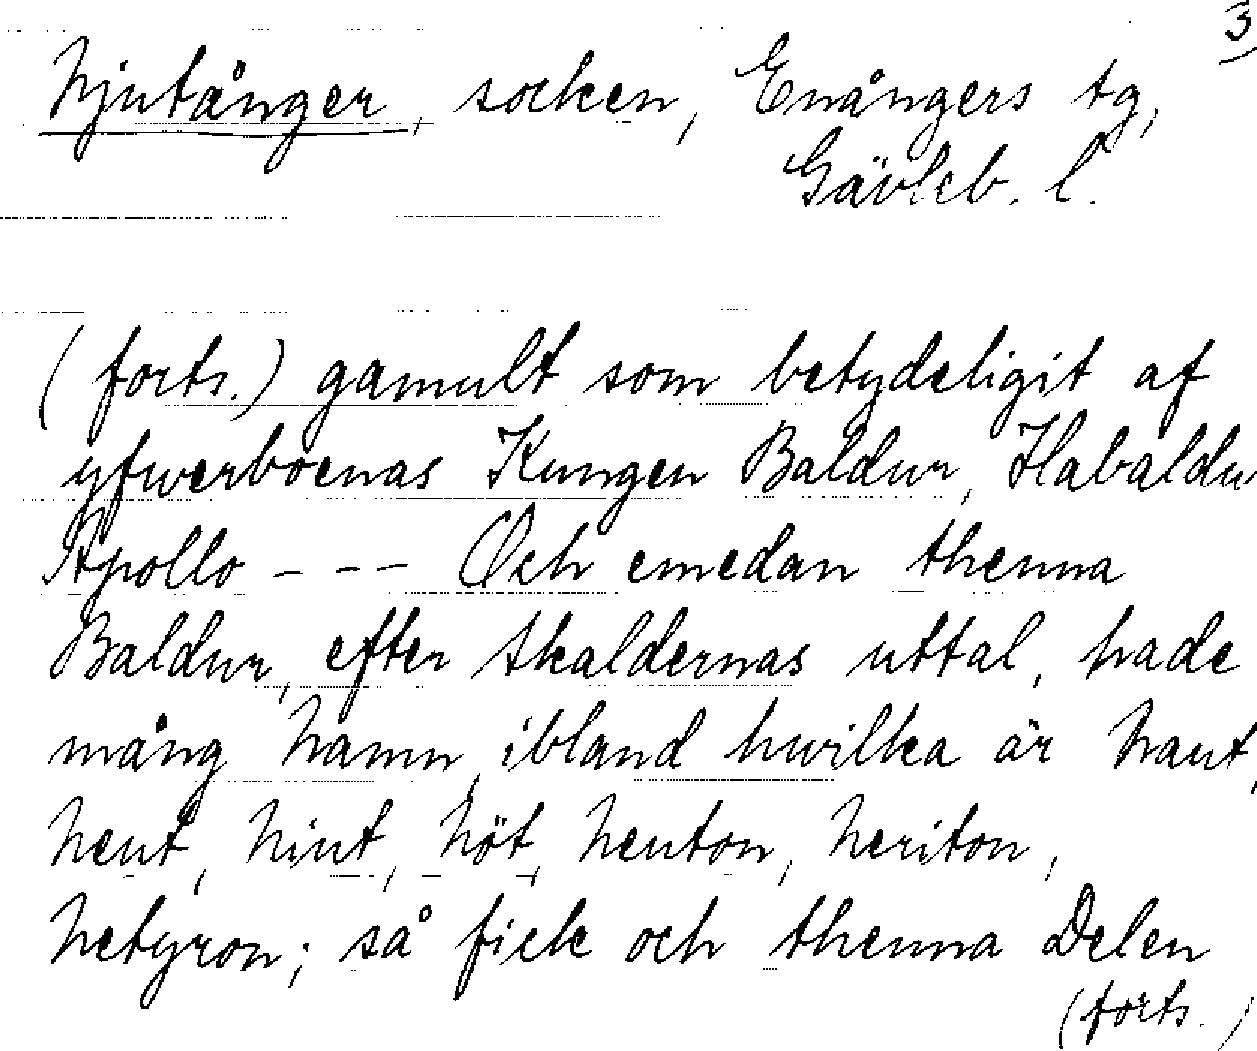 3
Njutånger, socken, Enångers tg,
Gävleb. l.
(forts.) gamult som betydeligit af
yfwerboenas Kungen Baldur, Habaldu
Apollo - - - Och emedan thenna
Baldur, efter Skaldernas uttal, hade
mång Namn, ibland hwilka är Naut,
Neut, Niut, Nöt, Neuton, Neriton,
Netyron; så fick och thenna Delen
(forts.)